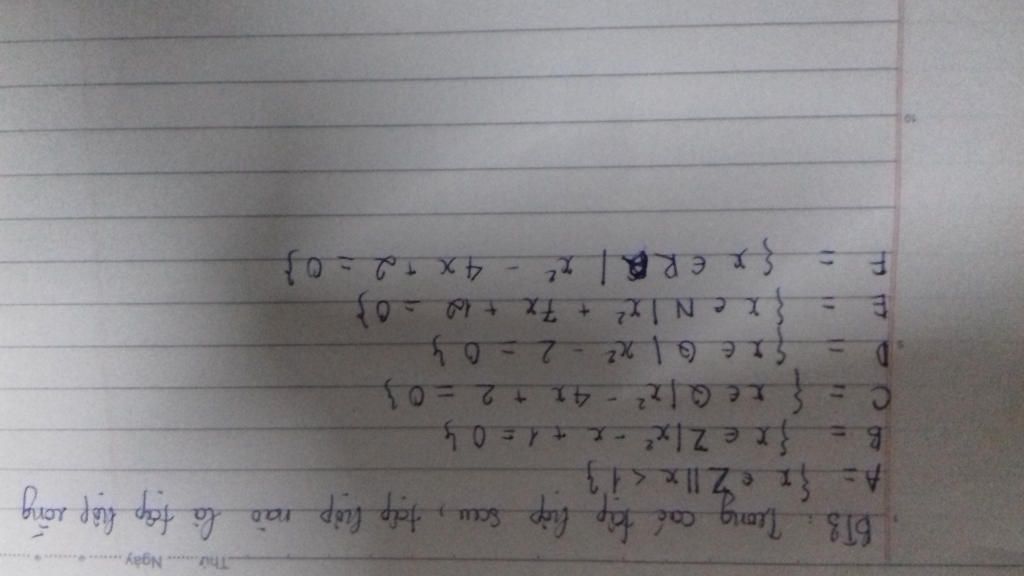 Thứ ........ Ngày ........
BT3: Trong các tập hợp sau, tập hợp nào là tập hợp rỗng
A = {x ∈ Z || x < 1}
B = {x ∈ Z | x² - x + 1 = 0}
C = { x ∈ Q | x² - 4x + 2 = 0}
D = {x ∈ Q | x² - 2 = 0}
5
E = {x ∈ N | x² + 7x + 12 = 0}
F = {x ∈ R | x² - 4x + 2 = 0}
10